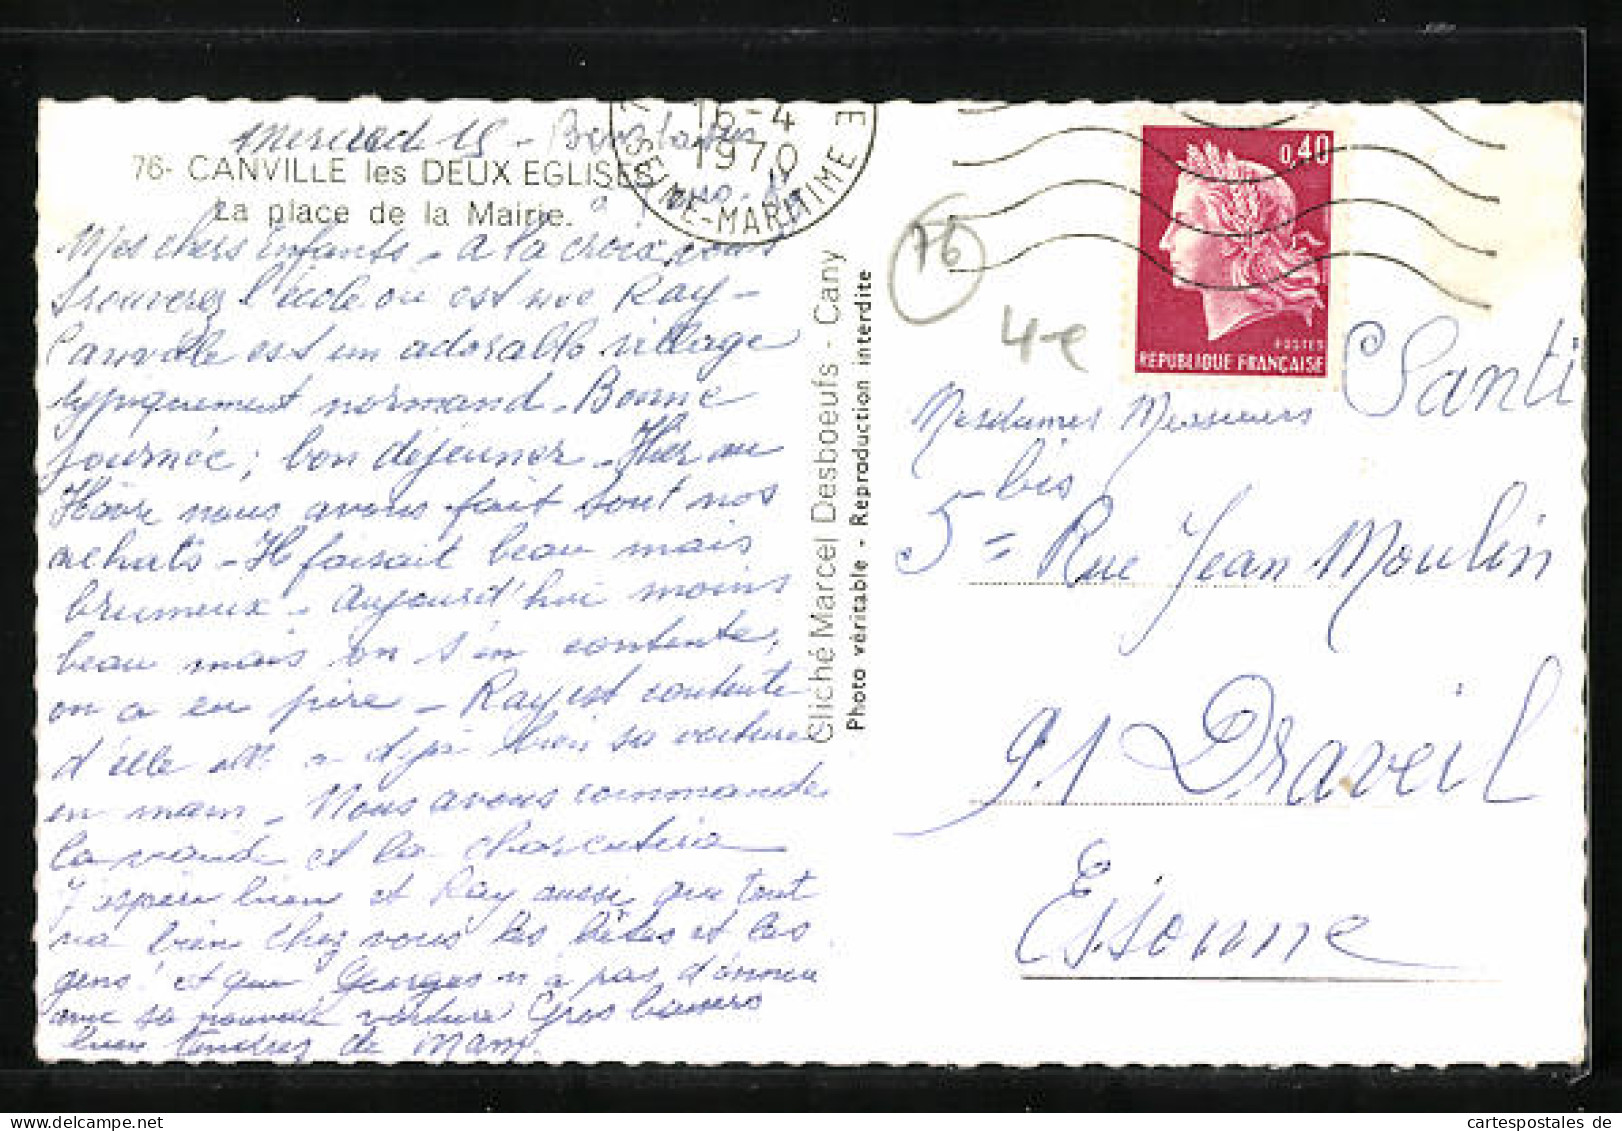 Mercredi 15 -
76- CANVILLE les DEUX EGLISES
La place de la Mairie.
16-4
1970
SEINE-MARITIME
Mes chers enfants - à la croix vous
trouverez l'école où est née Ray -
Canville est un adorable village
typiquement normand - Bonne
journée; bon déjeuner - Hier au
Hâvre nous avons fait tout nos
achats - Il faisait beau mais
brumeux - aujourd'hui moins
beau mais on s'en contente,
on a eu pire - Ray est contente
d'elle elle a déjà bien sa voiture
en main - Nous avons commandé
la viande et la charcuterie
J'espère bien et Ray aussi, que tout
va bien chez vous les bêtes et les
gens! et que Georges n'a pas d'ennui
avec sa nouvelle voiture Gros baisers
bien tendres de Mam.
Cliché Marcel Desboeufs - Cany
Photo véritable - Reproduction interdite
76
4-e
0,40
POSTES
REPUBLIQUE FRANÇAISE
Mesdames Messieurs Santi
5 bis Rue Jean Moulin
91 Draveil
Essonne
delcampe.net
cartespostales de